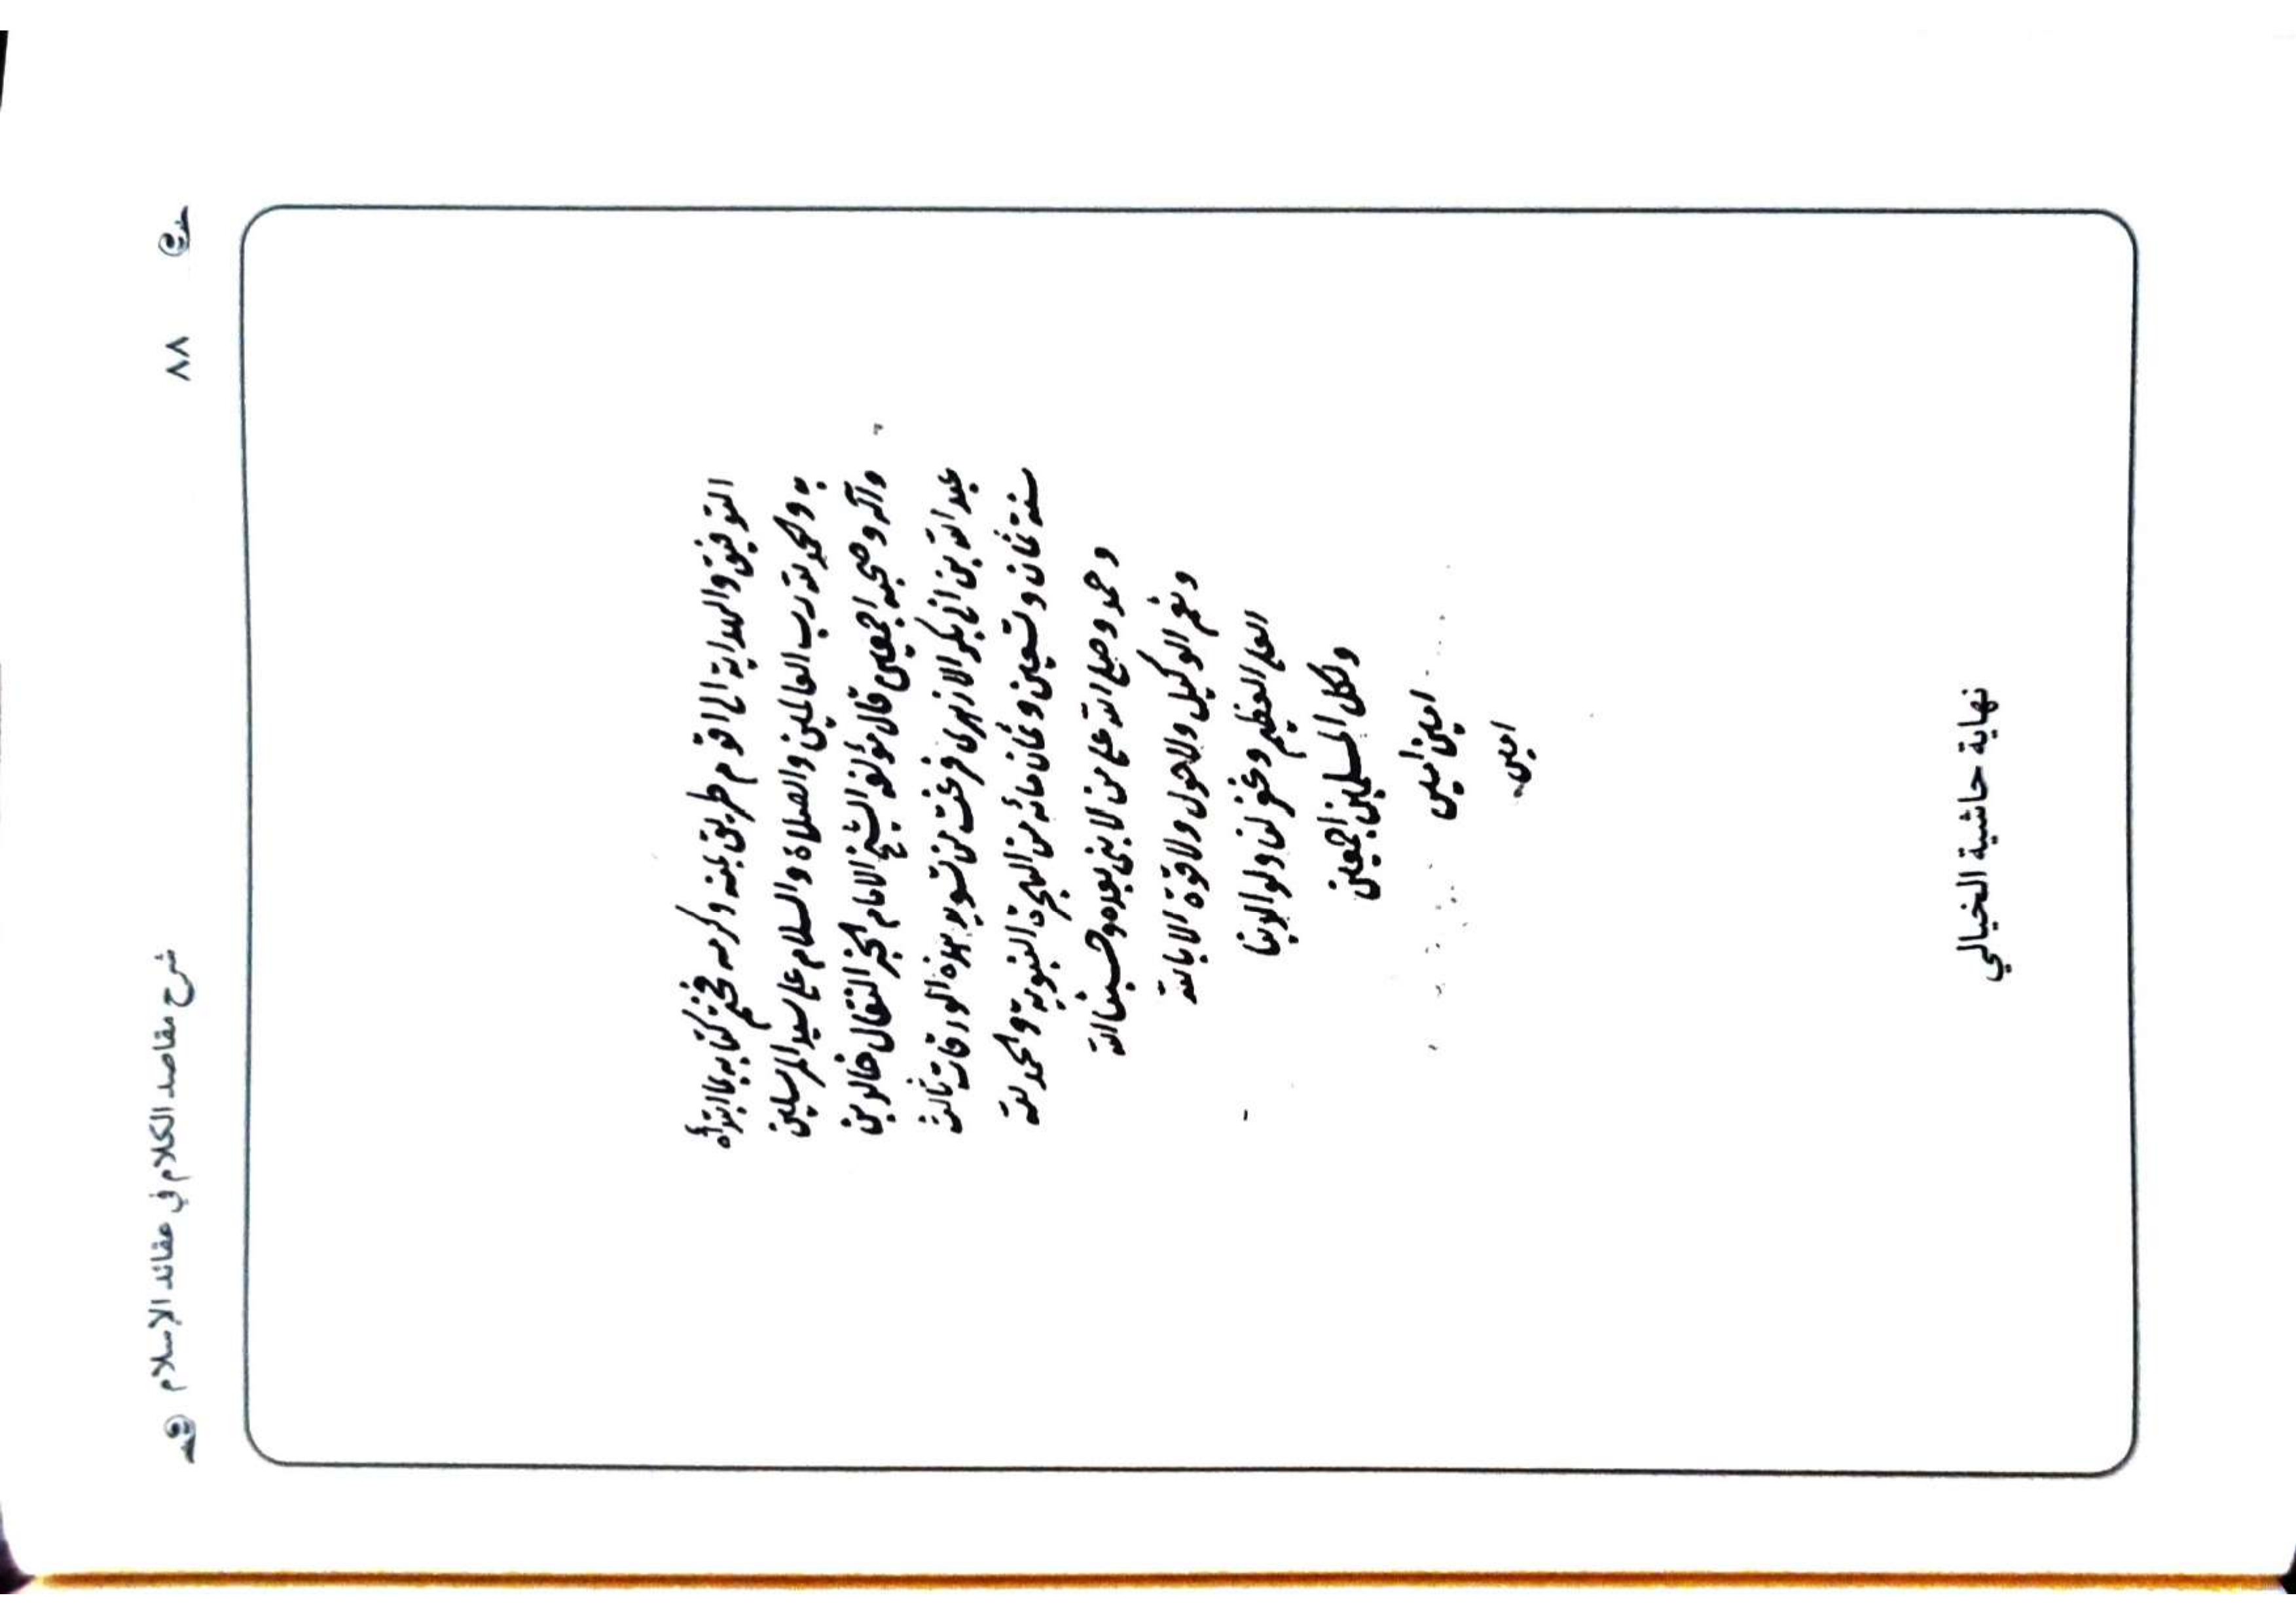 شرح مقاصد الكلام في عقائد الإسلام
٨٨
التوفيق والهداية الى اقوم طريق بمنه وكرمه فختم كتابه بما ابتدأه
به والحمد لله رب العالمين والصلاة والسلام على سيد المرسلين
وآله وصحبه اجمعين قال مؤلفه الشيخ الامام خالد بن
عبد الله بن ابى بكر الازهرى فرغت من تسويد هذه الورقات ثالث
سنة ثمان وتسعين وثمان مائه من الهجرة النبوية والحمد لله
وحده وصلى الله على من لا نبى بعده وحسبنا الله
ونعم الوكيل ولا حول ولا قوة الا بالله
العلى العظيم وغفر لنا ولوالدينا
ولكل المسلمين اجمعين
امين امين
امين
نهاية حاشية الخيالي